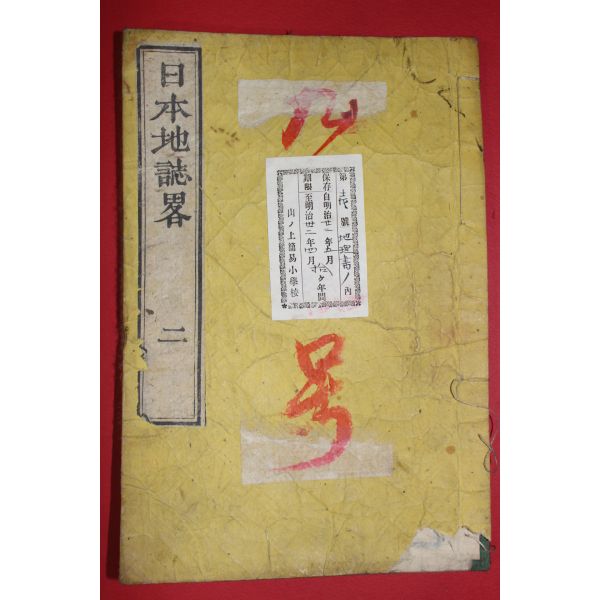 日本地誌畧 二
号
第 號 地理書ノ内
保存自明治廿一年五月
期限至明治卅二年四月 拾ケ年間
向ノ上簡易小學校